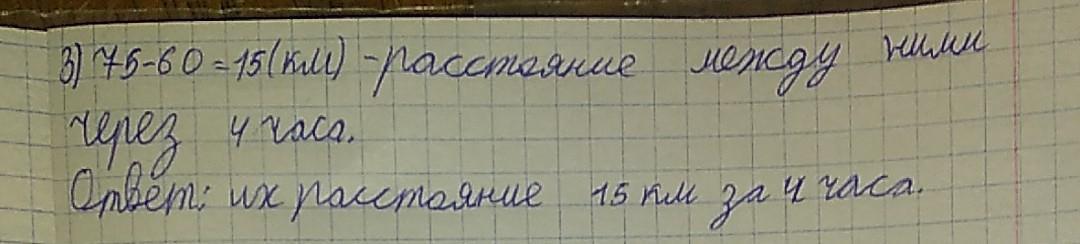 3) 75-60=15(км) -расстояние между ними
через 4 часа.
Ответ: их расстояние 15 км за 4 часа.